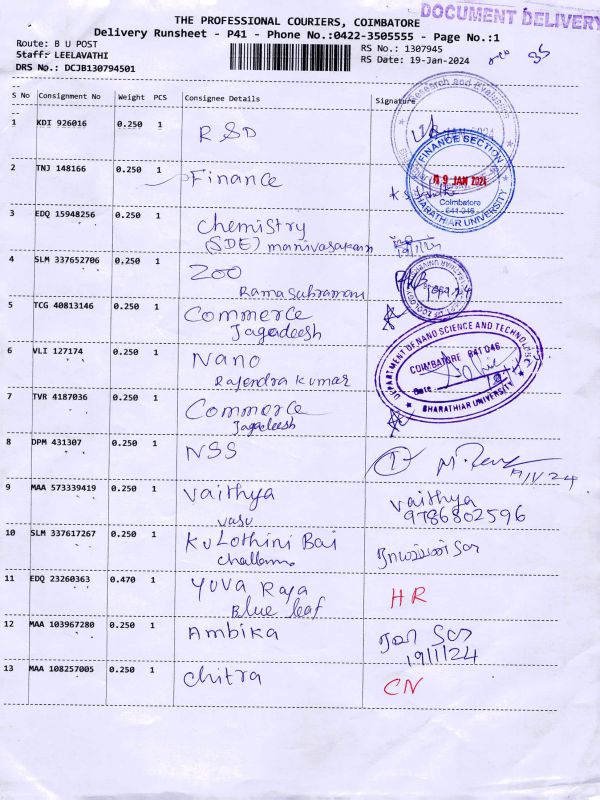 DOCUMENT DELIVERY
THE PROFESSIONAL COURIERS, COIMBATORE
Delivery Runsheet - P41 - Phone No.:0422-3505555 - Page No.:1
Route: B U POST
Staff: LEELAVATHI
DRS No.: DCJB130794501
RS No.: 1307945
RS Date: 19-Jan-2024
S No Consignment No Weight PCS Consignee Details Signature
1 KDI 926016 0.250 1 RSD
2 TNJ 148166 0.250 1 Finance
FINANCE SECTION
19 JAN 2024
Coimbatore
641 046
BHARATHIAR UNIVERSITY
3 EDQ 15948256 0.250 1 Chemistry
(SDE) manivasakan 19/1/24
4 SLM 337652706 0.250 1 ZOO
Ramasubramani
5 TCG 40813146 0.250 1 Commerce
Jagadeesh
6 VLI 127174 0.250 1 Nano
Rajendra kumar
DEPARTMENT OF NANO SCIENCE AND TECHNOLOGY
COIMBATORE 641 046
Date
BHARATHIAR UNIVERSITY
7 TVR 4187036 0.250 1 Commerce
Jagadeesh
8 DPM 431307 0.250 1 NSS
9 MAA 573339419 0.250 1 Vaithya Vaithya
vasu 9786802596
10 SLM 337617267 0.250 1 KuLothini Bai
11 EDQ 23260363 0.470 1 Yuva Raja HR
Blue leaf
12 MAA 103967280 0.250 1 Ambika
19/1/24
13 MAA 108257005 0.250 1 chitra CN